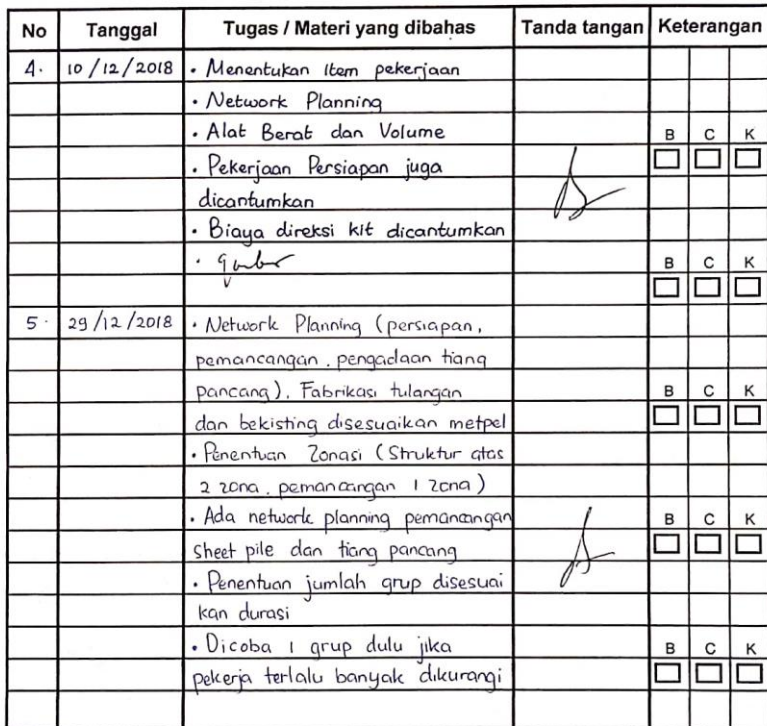 No Tanggal Tugas / Materi yang dibahas Tanda tangan Keterangan
4. 10/12/2018 • Menentukan Item pekerjaan
• Network Planning
• Alat Berat dan Volume B C K
• Pekerjaan Persiapan juga
dicantumkan
• Biaya direksi kit dicantumkan
• gambar B C K
5. 29/12/2018 • Network Planning (persiapan,
pemancangan, pengadaan tiang
pancang), Fabrikasi tulangan B C K
dan bekisting disesuaikan metpel
• Penentuan Zonasi (Struktur atas
2 zona, pemancangan 1 zona)
• Ada network planning pemancangan B C K
sheet pile dan tiang pancang
• Penentuan jumlah grup disesuai
kan durasi
• Dicoba 1 grup dulu jika B C K
pekerja terlalu banyak dikurangi